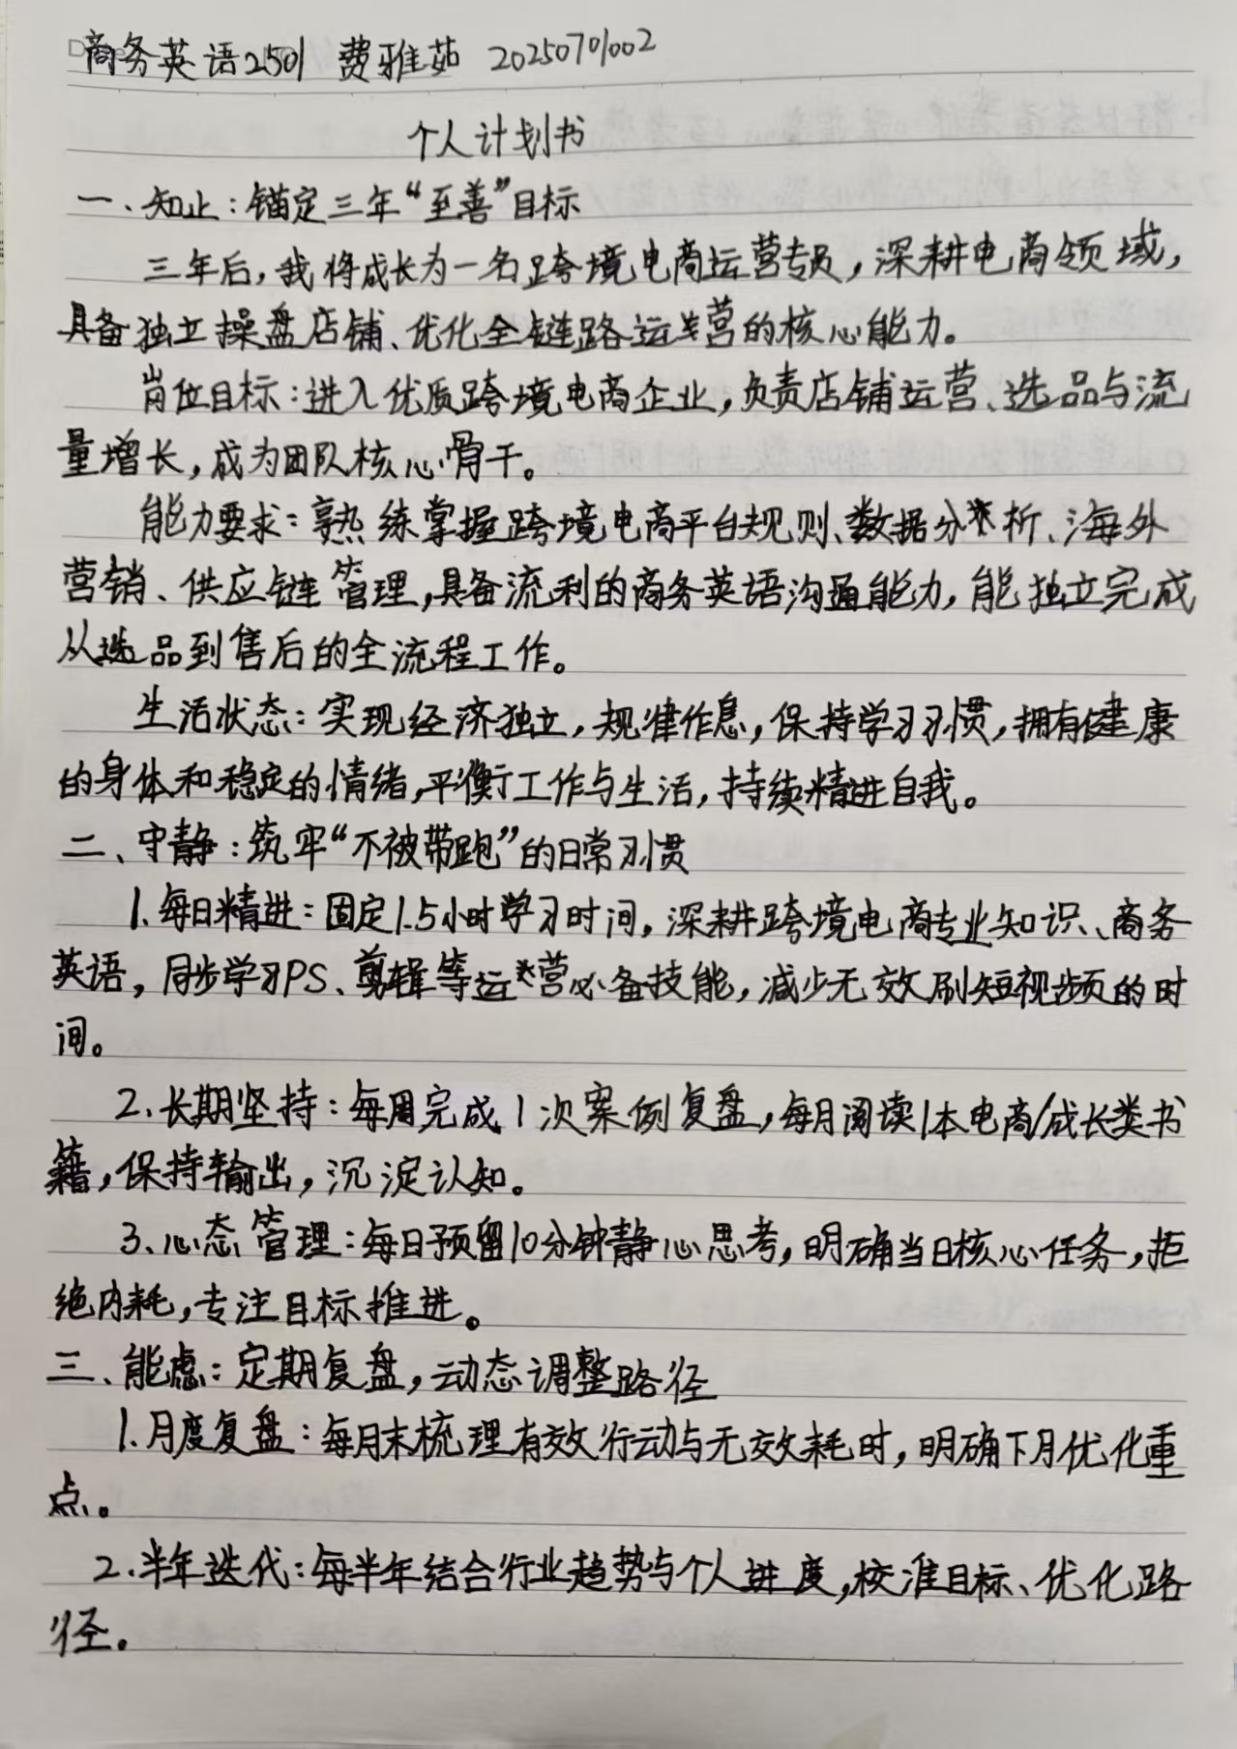 商务英语2501 费雅茹 20250701002
个人计划书
一、知止：锚定三年“至善”目标
三年后，我将成长为一名跨境电商运营专员，深耕电商领域，
具备独立操盘店铺、优化全链路运营的核心能力。
岗位目标：进入优质跨境电商企业，负责店铺运营、选品与流
量增长，成为团队核心骨干。
能力要求：熟练掌握跨境电商平台规则、数据分析、海外
营销、供应链管理，具备流利的商务英语沟通能力，能独立完成
从选品到售后的全流程工作。
生活状态：实现经济独立，规律作息，保持学习习惯，拥有健康
的身体和稳定的情绪，平衡工作与生活，持续精进自我。
二、守静：筑牢“不被带跑”的日常习惯
1.每日精进：固定1.5小时学习时间，深耕跨境电商专业知识、商务
英语，同步学习PS、剪辑等运营必备技能，减少无效刷短视频的时
间。
2.长期坚持：每周完成1次案例复盘，每月阅读1本电商/成长类书
籍，保持输出，沉淀认知。
3.心态管理：每日预留10分钟静心思考，明确当日核心任务，拒
绝内耗，专注目标推进。
三、能虑：定期复盘，动态调整路径
1.月度复盘：每月末梳理有效行动与无效耗时，明确下月优化重
点。
2.半年迭代：每半年结合行业趋势与个人进度，校准目标、优化路
径。